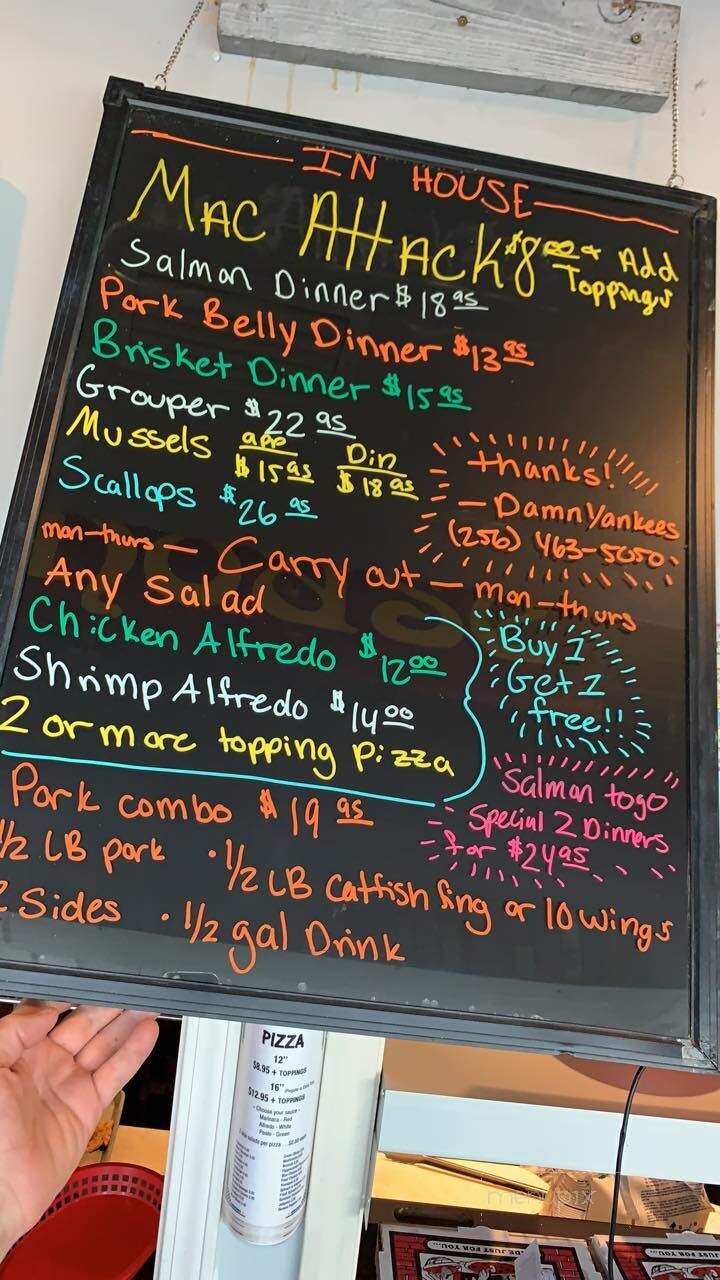 IN HOUSE
Mac Attack $8.00 + Add Toppings
Salmon Dinner $18.95
Pork Belly Dinner $13.95
Brisket Dinner $15.95
Grouper $22.95
Mussels app $15.95 Din $18.95
Scallops $26.95
thanks!
- Damn Yankees
(256) 463-5050
mon-thurs - Carry out - mon-thurs
Any Salad
Chicken Alfredo $12.00
Shrimp Alfredo $14.00
2 or more topping pizza
Buy 1
Get 1
free!!
Salmon togo
Special 2 Dinners
for $24.95
Pork combo $19.95
1/2 LB pork · 1/2 LB Catfish fing or 10 wings
2 Sides · 1/2 gal Drink
PIZZA
12"
$8.95 + TOPPINGS
16"
$12.95 + TOPPINGS
- Choose your sauce -
Marinara - Red
Alfredo - White
Pesto - Green
menupix